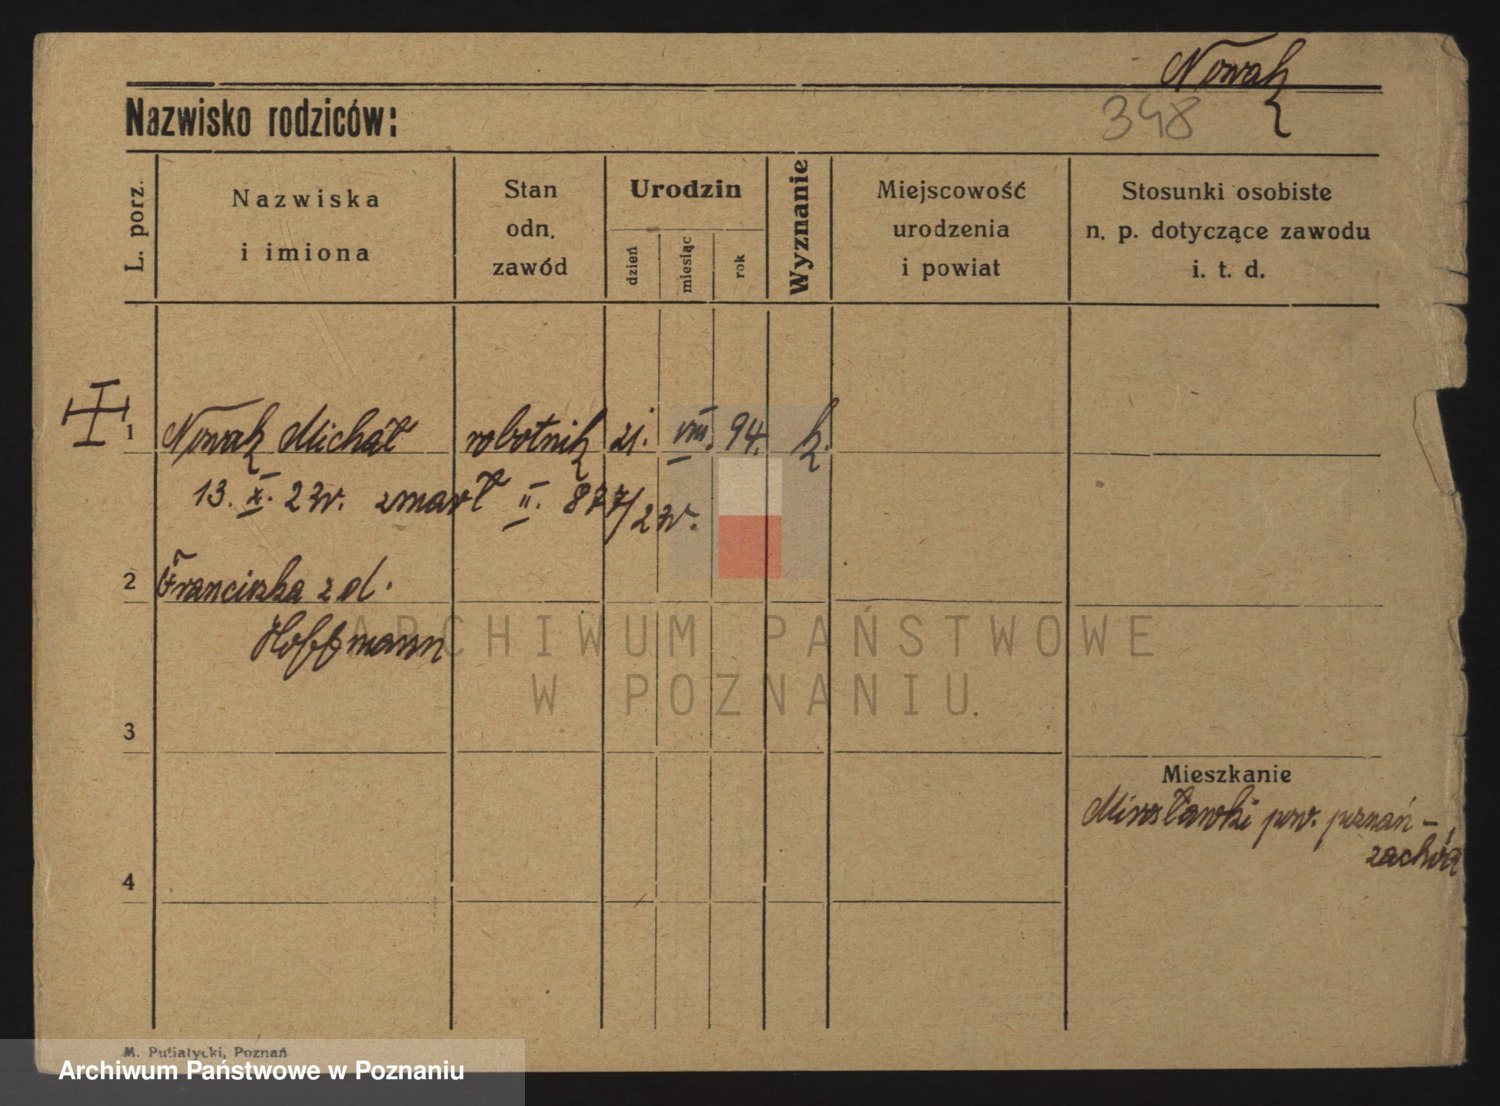 Nowak
Nazwisko rodziców:
348
L. porz.
Nazwiska
i imiona
Stan
odn.
zawód
Urodzin
dzień
miesiąc
rok
Wyznanie
Miejscowość
urodzenia
i powiat
Stosunki osobiste
n. p. dotyczące zawodu
i. t. d.
1
Nowak Michał robotnik 21. VIII. 94. k.
13. X. 23r. zmarł II. 877/23r.
2
Franciszka z d.
Hoffmann
ARCHIWUM PAŃSTWOWE
W POZNANIU
3
Mieszkanie
Mirosławki pow. poznań-
zachód
4
M. Putiatycki, Poznań
Archiwum Państwowe w Poznaniu